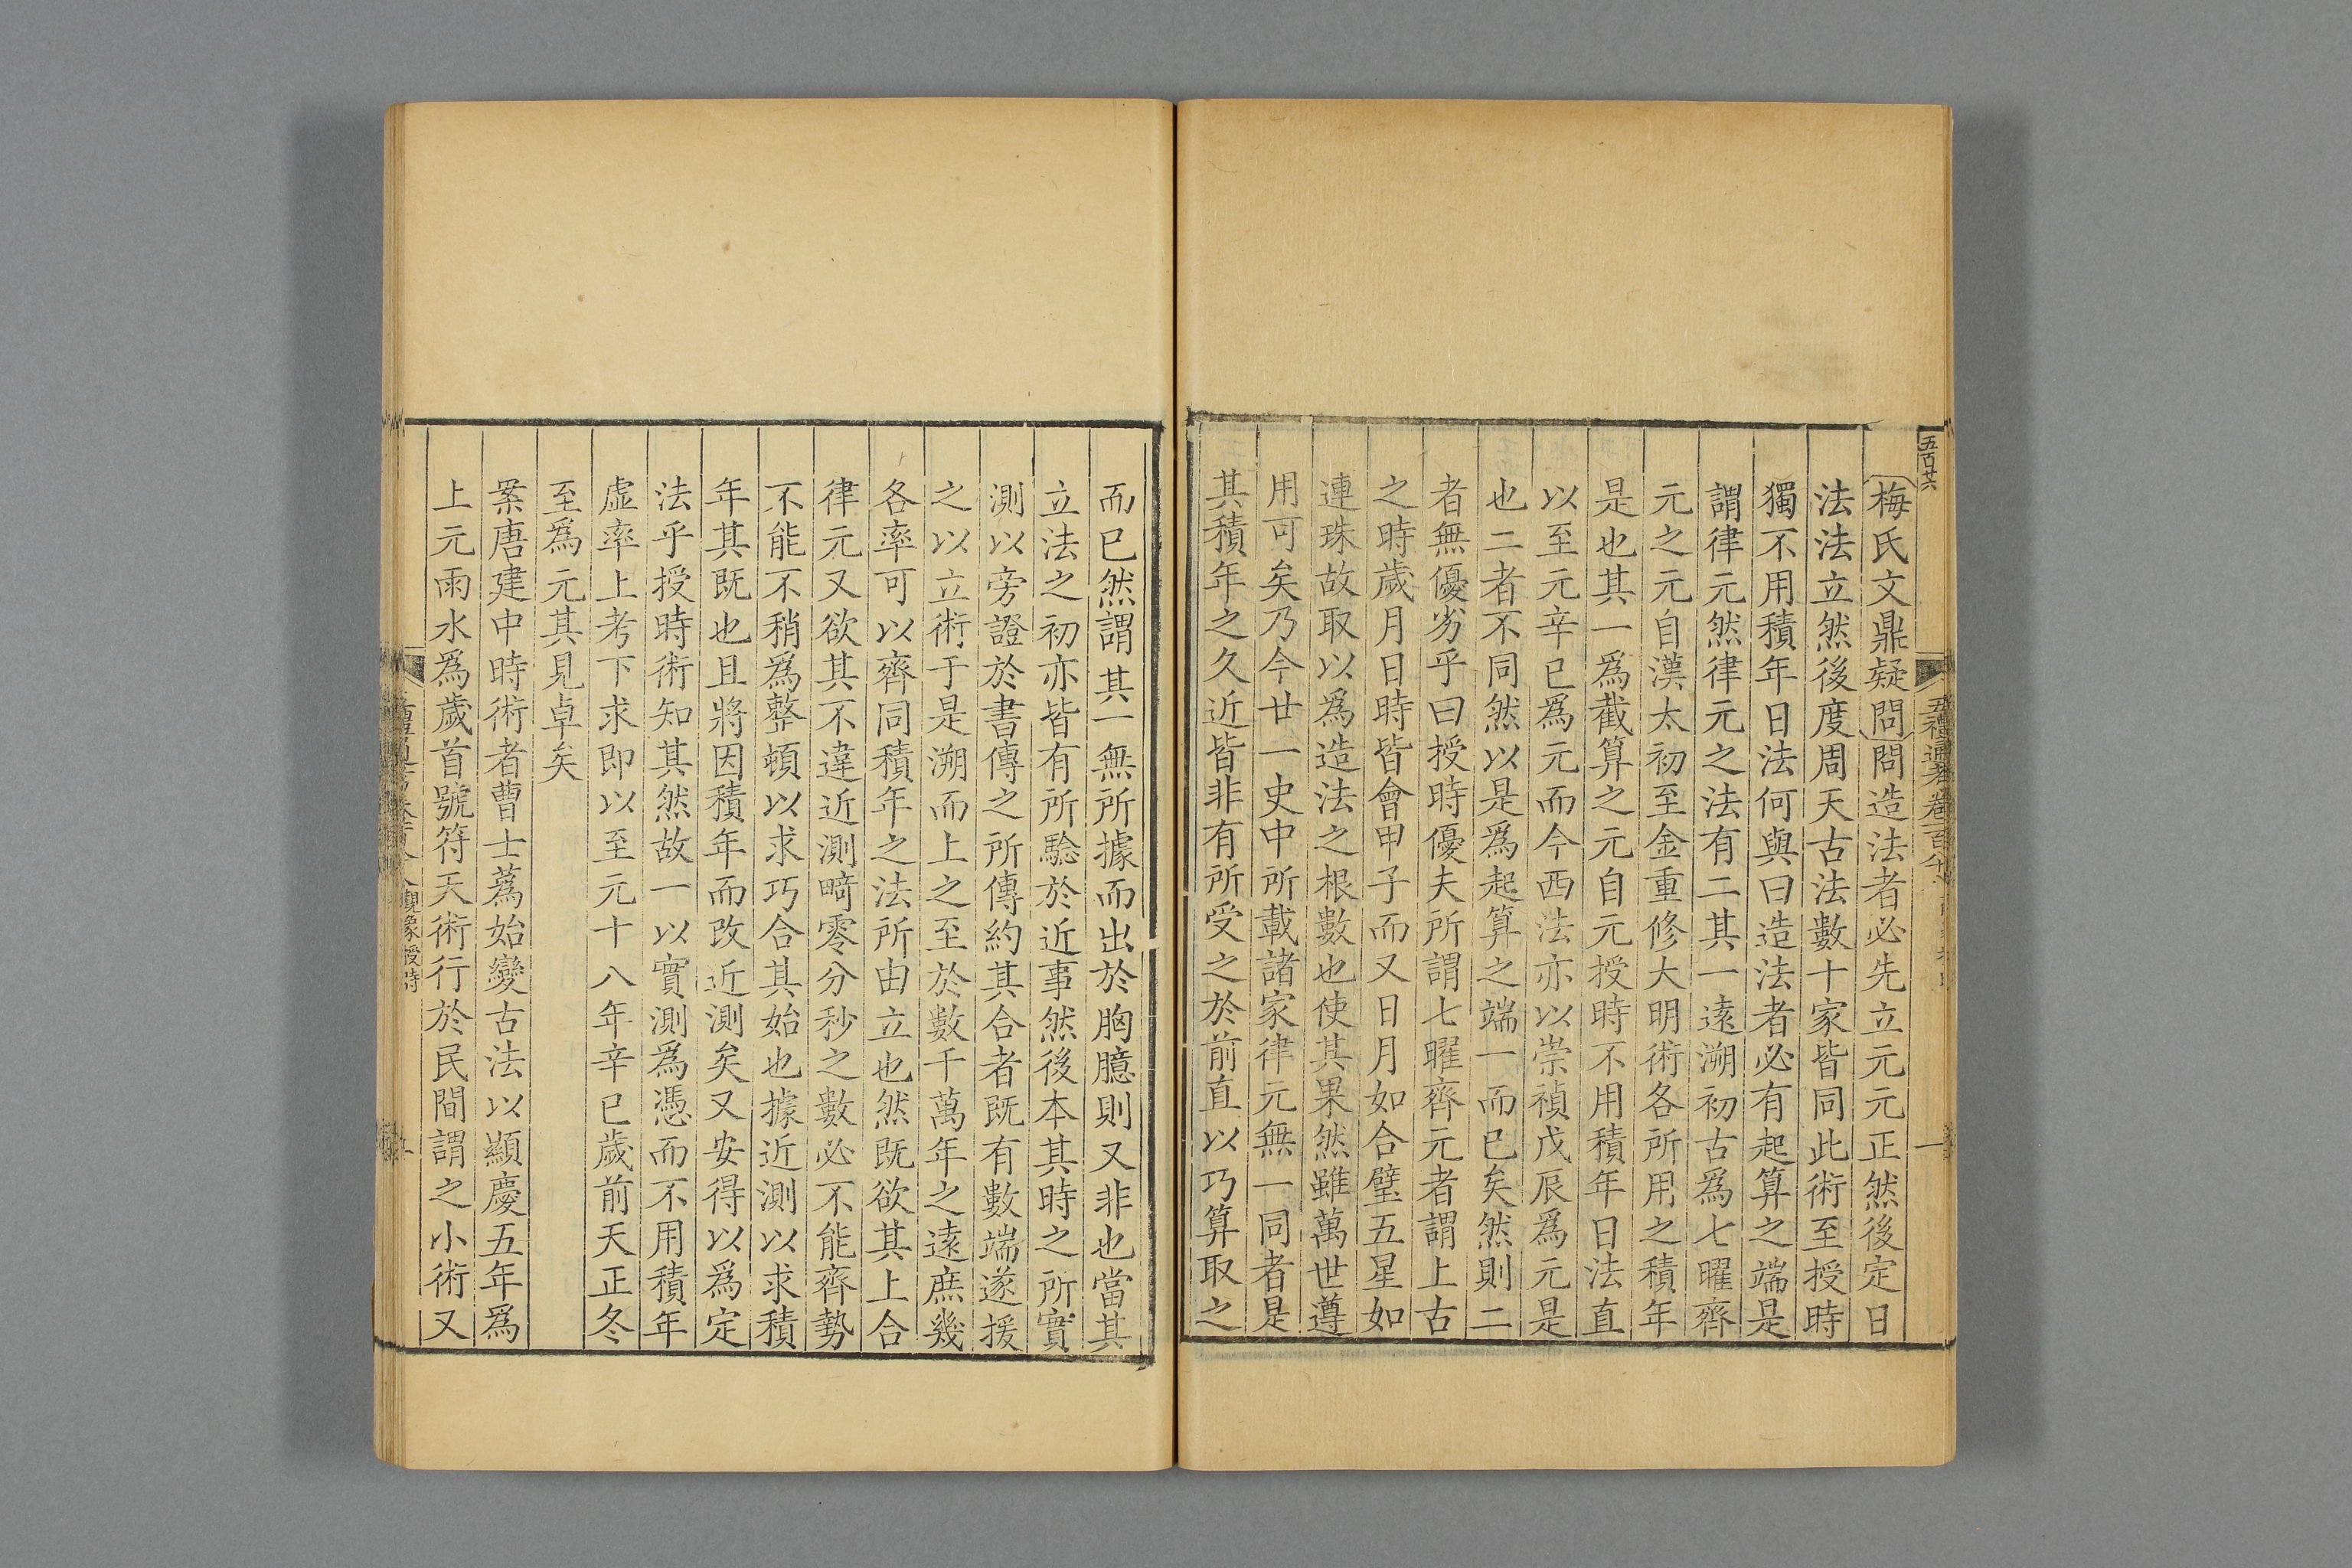 五百廿六
五禮通考卷一百八十
一
梅氏文鼎疑問問造法者必先立元元正然後定日
法法立然後度周天古法數十家皆同此術至授時
獨不用積年日法何與曰造法者必有起算之端是
謂律元然律元之法有二其一遠溯初古爲七曜齊
元之元自漢太初至金重修大明術各所用之積年
是也其一爲截算之元自元授時不用積年日法直
以至元辛巳爲元而今西法亦以崇禎戊辰爲元是
也二者不同然以是爲起算之端一而已矣然則二
者無優劣乎曰授時優夫所謂七曜齊元者謂上古
之時歲月日時皆會甲子而又日月如合璧五星如
連珠故取以爲造法之根數也使其果然雖萬世遵
用可矣乃今廿一史中所載諸家律元無一同者是
其積年之久近皆非有所受之於前直以巧算取之
而已然謂其一無所據而出於胸臆則又非也當其
立法之初亦皆有所驗於近事然後本其時之所實
測以旁證於書傳之所傳約其合者既有數端遂援
之以立術于是溯而上之至於數千萬年之遠庶幾
各率可以齊同積年之法所由立也然既欲其上合
律元又欲其不違近測畸零分秒之數必不能齊勢
不能不稍爲整頓以求巧合其始也據近測以求積
年其既也且將因積年而改近測矣又安得以爲定
法乎授時術知其然故一以實測爲憑而不用積年
虛率上考下求即以至元十八年辛巳歲前天正冬
至爲元其見卓矣
案唐建中時術者曹士蔿始變古法以顯慶五年爲
上元雨水爲歲首號符天術行於民間謂之小術又
觀象授時